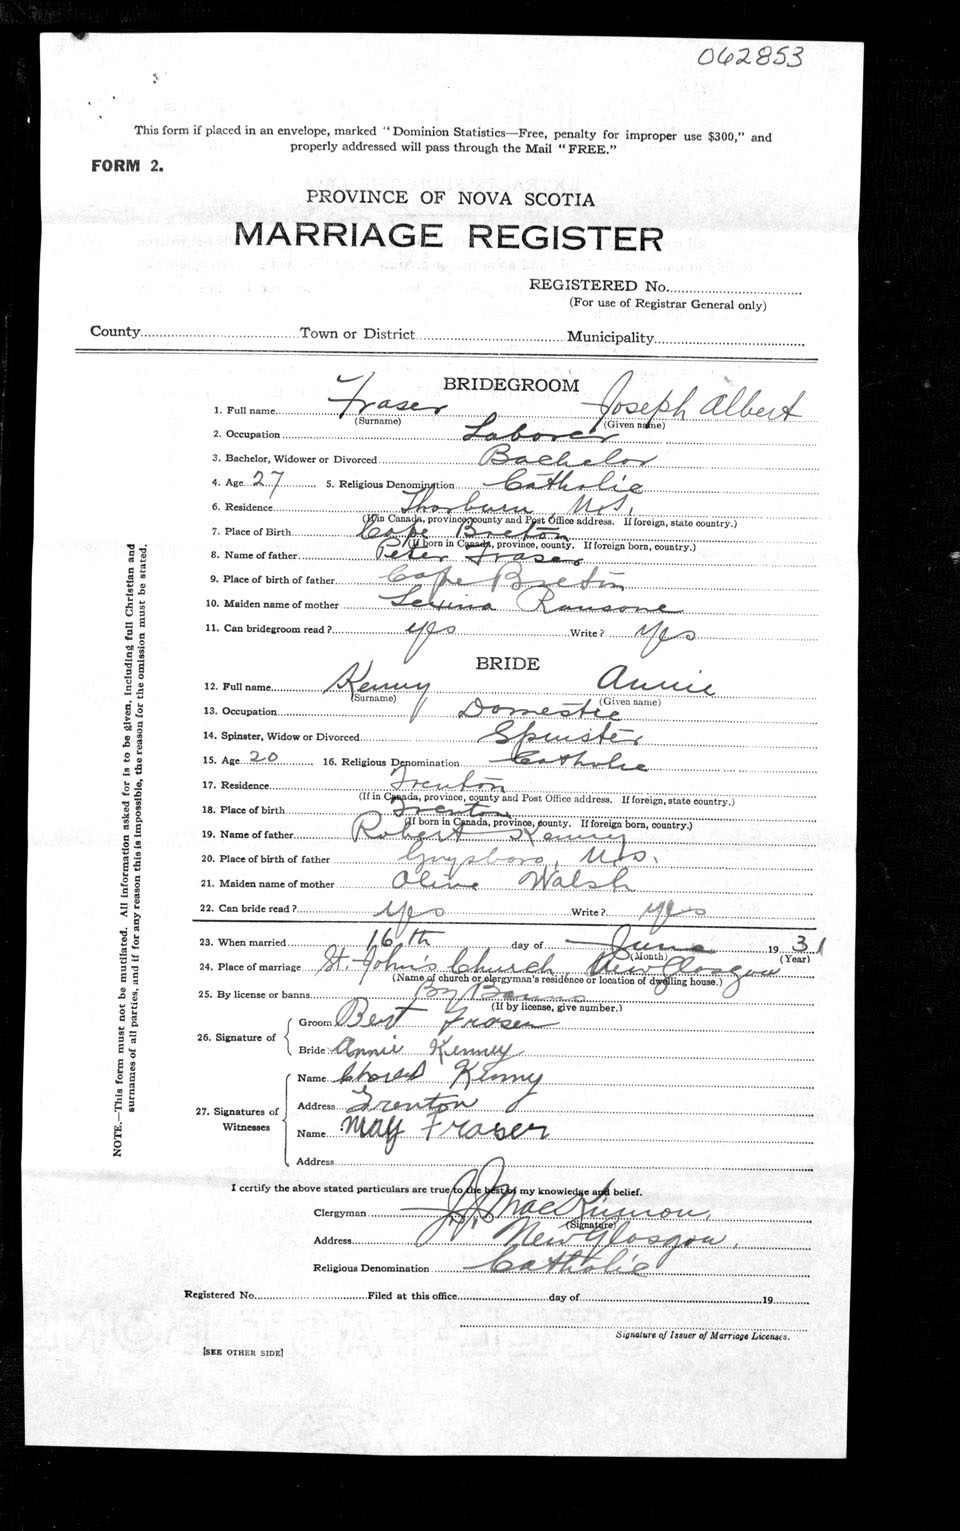 062853
This form if placed in an envelope, marked "Dominion Statistics—Free, penalty for improper use $300," and
properly addressed will pass through the Mail "FREE."
FORM 2.
PROVINCE OF NOVA SCOTIA
MARRIAGE REGISTER
REGISTERED No.
(For use of Registrar General only)
County Town or District Municipality
BRIDEGROOM
1. Full name Fraser Joseph Albert
(Surname) (Given name)
2. Occupation Laborer
3. Bachelor, Widower or Divorced Bachelor
4. Age 27 5. Religious Denomination Catholic
6. Residence Thorburn N.S.
(If in Canada, province, county and Post Office address. If foreign, state country.)
7. Place of Birth Cape Breton
(If born in Canada, province, county. If foreign born, country.)
8. Name of father Peter Fraser
9. Place of birth of father Cape Breton
10. Maiden name of mother Ransone
11. Can bridegroom read? yes Write? yes
BRIDE
12. Full name Kenny Annie
(Surname) (Given name)
13. Occupation Domestic
14. Spinster, Widow or Divorced Spinster
15. Age 20 16. Religious Denomination Catholic
17. Residence Trenton
(If in Canada, province, county and Post Office address. If foreign, state country.)
18. Place of birth Trenton
(If born in Canada, province, county. If foreign born, country.)
19. Name of father Robert Kenny
20. Place of birth of father Guysboro, N.S.
21. Maiden name of mother Olive Walsh
22. Can bride read? yes Write? yes
23. When married 16th day of June 1931
(Month) (Year)
24. Place of marriage St. John's Church, New Glasgow
(Name of church or clergyman's residence or location of dwelling house.)
25. By license or banns By Banns
(If by license, give number.)
26. Signature of
Groom Bert Fraser
Bride Annie Kenney
27. Signatures of Witnesses
Name Kenny
Address Trenton
Name May Fraser
Address
I certify the above stated particulars are true to the best of my knowledge and belief.
Clergyman MacKinnon,
(Signature)
Address New Glasgow,
Religious Denomination Catholic
Registered No. Filed at this office day of 19
Signature of Issuer of Marriage Licenses.
[SEE OTHER SIDE]
NOTE.—This form must not be mutilated. All information asked for is to be given, including full Christian and
surnames of all parties, and if for any reason this is impossible, the reason for the omission must be stated.